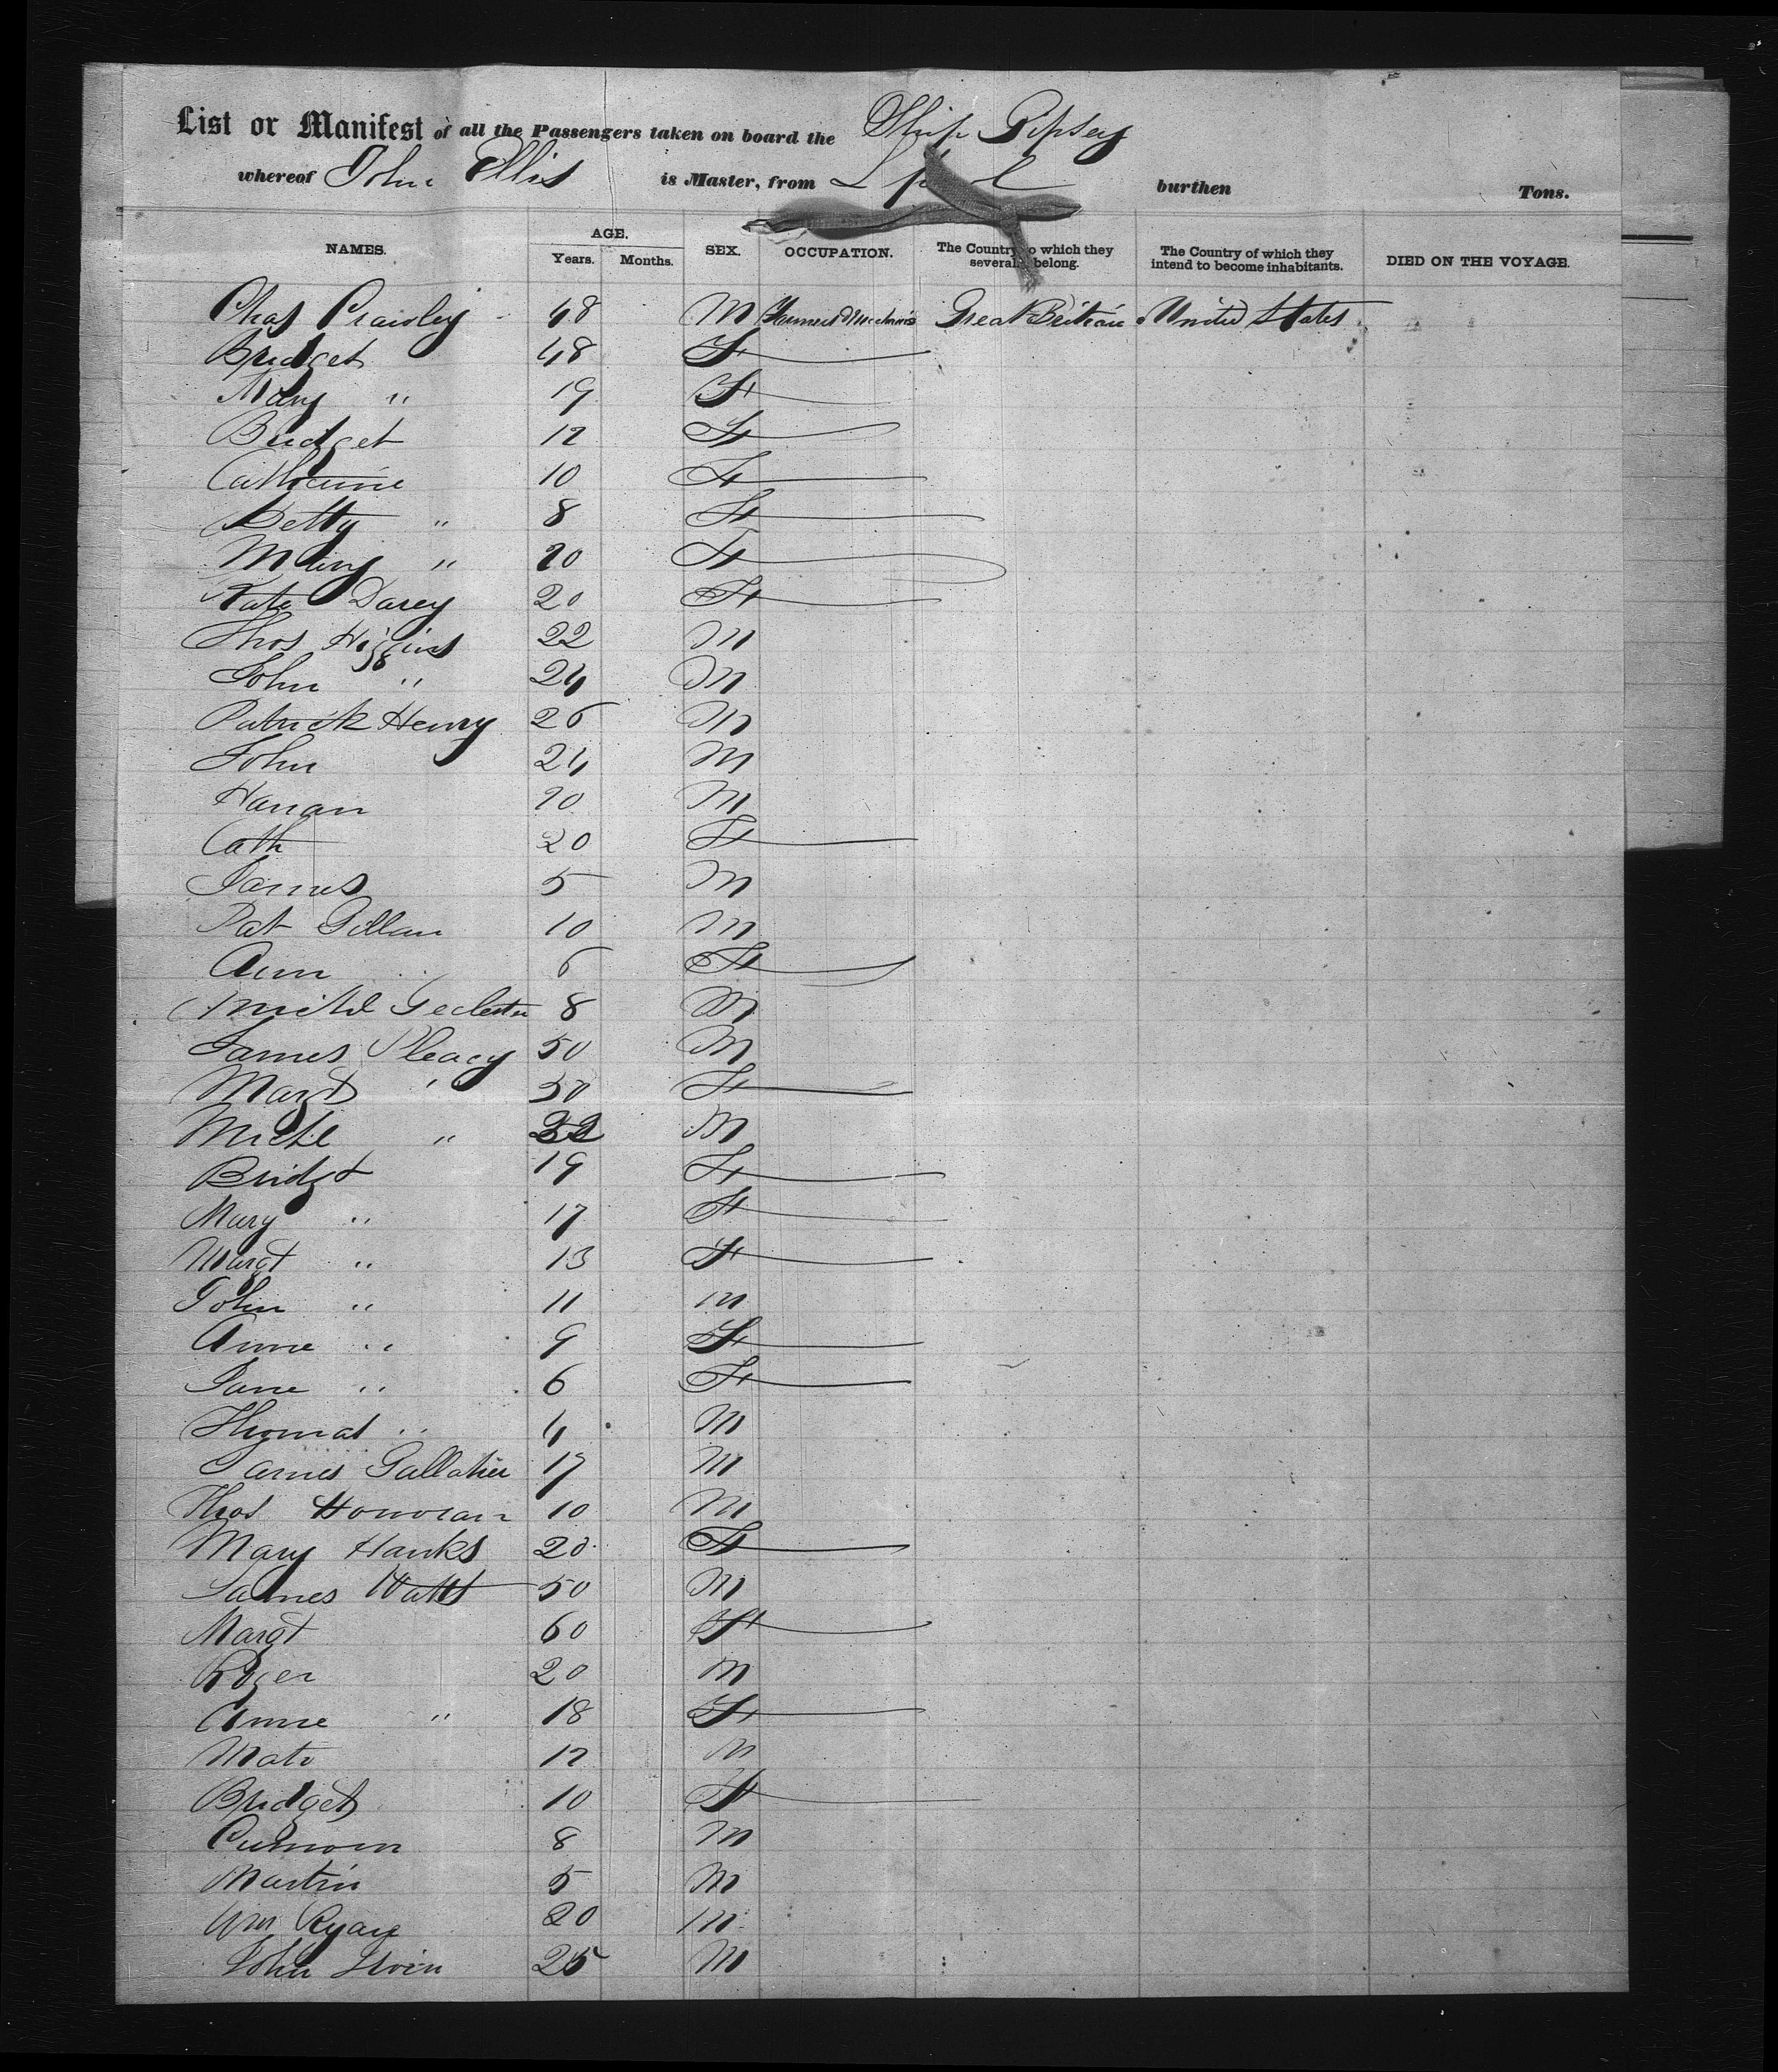 List or Manifest of all the Passengers taken on board the Ship Gipsey
whereof John Ellis is Master, from L'pool burthen Tons.
NAMES. AGE. Years. Months. SEX. OCCUPATION. The Country to which they severally belong. The Country of which they intend to become inhabitants. DIED ON THE VOYAGE.
Chas 48 M Great Britian United States
Bridget 48 F
Mary " 19 F
Bridget 12 F
Catherine 10 F
Betty " 8 F
Mary " 20 F
Kate Darey 20 F
Thos Higgins 22 M
John " 24 M
Patrick Henry 26 M
John 24 M
Hanan 20 M
Cath 20 F
James 5 M
Pat Gillan 10 M
Ann 6 F
Michl 8 M
James Pleacy 50 M
Margt " 50 F
Michl " 22 M
Bridgt 19 F
Mary " 17 F
Margt " 13 F
John " 11 M
Anne " 9 F
Jane " 6 F
Thomas " 4 M
James Gallaher 17 M
Thos Honoran 10 M
Mary Hanks 20 F
James Watts 50 M
Margt 60 F
Roger 20 M
Anne " 18 F
Mat 12 M
Bridget 10 F
8 M
Martin 5 M
Wm Ryan 20 M
John 25 M